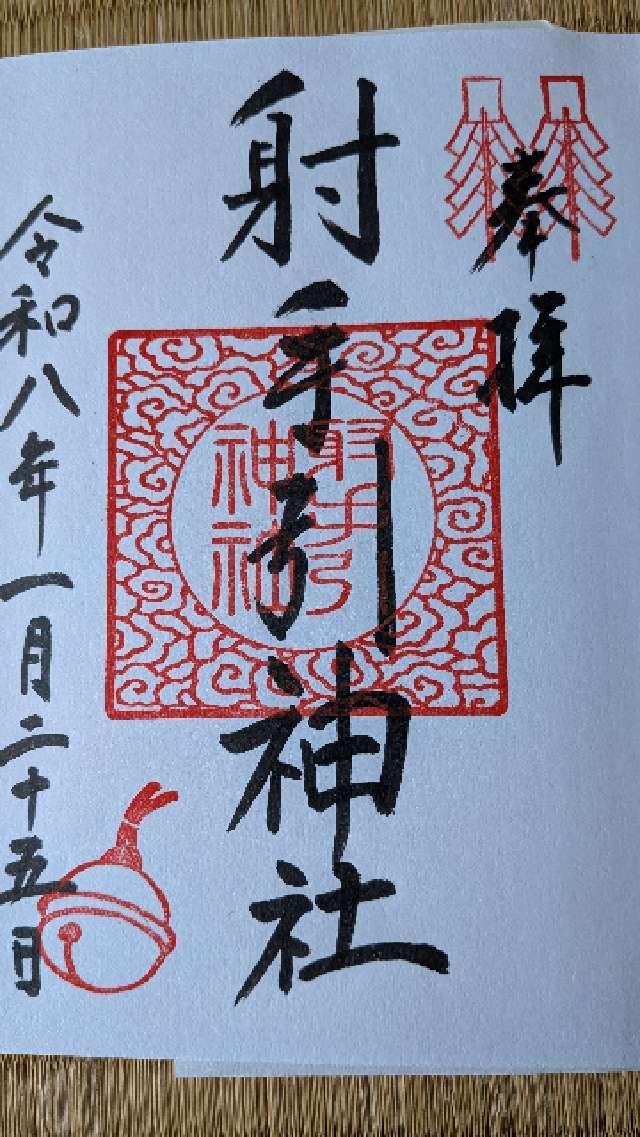 奉拝
射手引神社
射手引
神社
令和八年一月二十五日